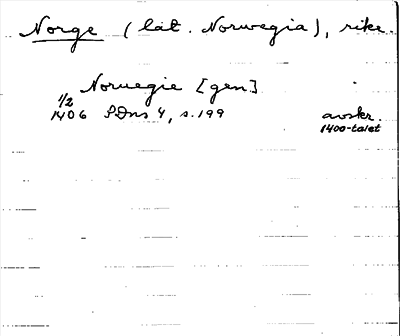 Norge (lat. Norwegia), rike.
Norwegie [gen]
1/2
1406 SDns 4, s. 199 avskr.
1400-talet